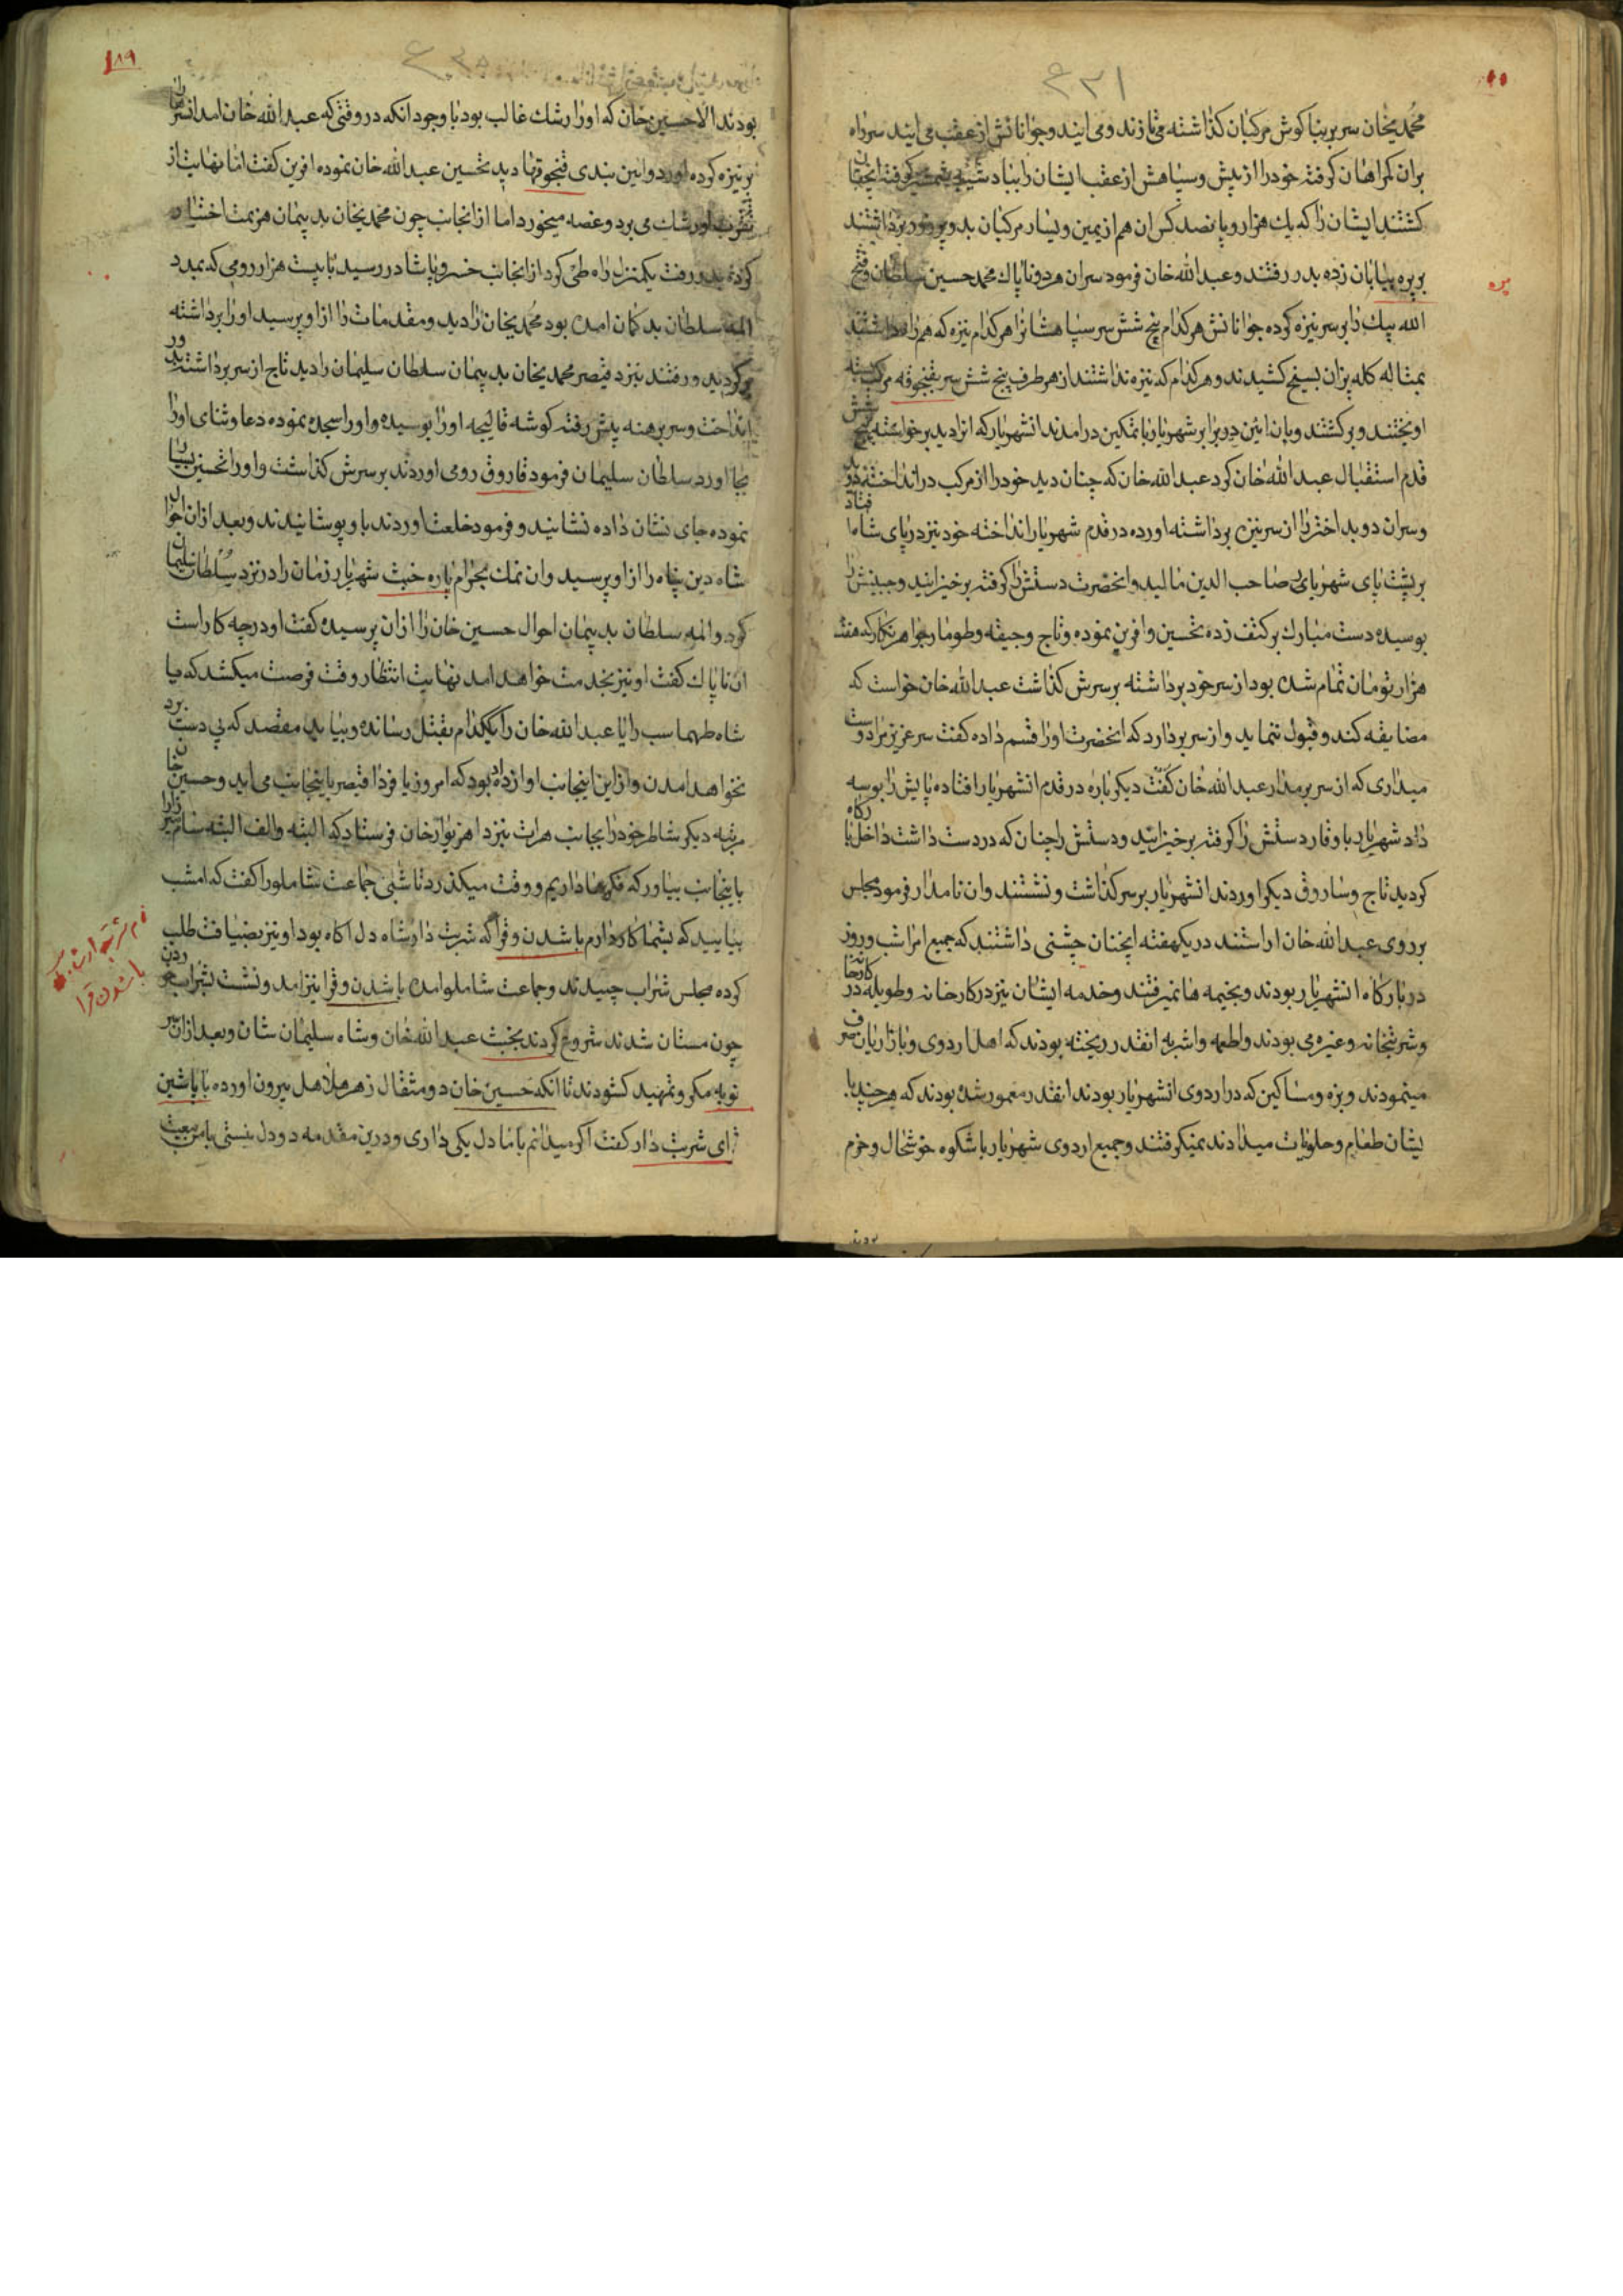 ۶۳۱
محمدیخان سر بر بناکوش مرکبان کذاشته می تازند و می ایند و جوانانش از عقب می ایند سر راه
بران کمراهان کرفته خود را از پیش و سپاهش از عقب ایشان را بباد کرفته
کشتند ایشان را که یک هزار و پانصد کس ان هم از یمین و یسار مرکبان بدر برداشتند
بربره بیابان زده بدر رفتند و عبدالله خان فرمود سران هر دو ناپاک محمد حسین سلطان و فتح
الله بیک را بر سر نیزه کرده جوانانش هر کدام پنج شش سر سپاهشانرا هر کدام نیزه که همراه داشتند
بمثاله کله پزان بسیخ کشیدند و هر کدام که نیزه نداشتند از هر طرف پنج شش سر بقنجوقه مرکب بسته
اویختند و برکشتند و بان ائین در برابر شهریار با تمکین درامدند انشهریار که انرا دید برخواسته پنج شش
قدم استقبال عبدالله خان کرد عبدالله خان که چنان دید خود را از مرکب در انداخته دوید
و سران دو بد اختر را از سر نیزه برداشته اورده در قدم شهریار انداخته خود نیز در پای شاه افتاد
بر پشت پای شهریار صاحب الدین مالید و انحضرت دستش را کرفته برخیزانید و جبینش را
بوسیده دست مبارک بر کتف زده تحسین و افرین نموده و تاج و جیقه و طومار جواهر نکار که هفت
هزار تومان تمام شده بود از سر خود برداشته بر سرش کذاشت عبدالله خان خواست که
مضایقه کند و قبول ننماید و از سر بردارد که انحضرت او را قسم داده کفت سر عزیز مرا دوست
میداری که از سر بر مدار عبدالله خان کفت دیکر باره در قدم انشهریار افتاده پایش را بوسه
داد شهریار با وقار دستش را کرفته برخیزانید و دستش را چنان که در دست داشت داخل بارکاه
کردید تاج و ساروق دیکر اوردند انشهریار بر سر کذاشت و نشستند و ان نامدار فرمود مجلس
بر روی عبدالله خان اراستند در یکهفته ایخنان جشنی داشتند که جمیع امرا شب و روز
در بارکاه انشهریار بودند و بخیمه ها نمیرفتند و خدمه ایشان نیز در کارخانه و طویله در کارخانه
و شربتخانه و غیره می بودند و اطعمه و اشربه انقدر ریخته بودند که اهل اردوی و بازاریان صرف
مینمودند و بزه و مساکین که در اردوی انشهریار بودند انقدر معمور شده بودند که هر چند با
یشان طعام و حلویات میدادند نمیکرفتند و جمیع اردوی شهریار با شکوه خوشحال و خرم
بودند
بره
۱۸۹
بودند الا حسین خان که او را رشک غالب بود با وجود انکه در وقتی که عبدالله خان امد انسران
بر نیزه کرده اورد و این بندی قنجوقها دید تحسین عبدالله خان نموده افرین کفت اما نهایت از
تقرب او رشک می برد و غصه میخورد اما از انجانب چون محمدیخان بد پیمان هزیمت اختیار
کرده بدر رفت یکمنزل راه طی کرد از انجانب خسرو پاشا در رسید با بیست هزار رومی که بمدد
المه سلطان بد کمان امده بود محمدیخان را دید و مقدمات را از او پرسید او را برداشته
برکردید و رفتند نیزد قیصر محمدیخان بد پیمان سلطان سلیمان را دید تاج از سر برداشته بدور
انداخت و سر برهنه پیش رفته کوشه قالیجه او را بوسیده و او را سجده نموده دعا و ثنای او را
بجا اورد سلطان سلیمان فرمود قاروق رومی اوردند بر سرش کذاشت و او را تحسین بسیار
نموده جای نشان داده نشانیند و فرمود خلعت اوردند باو پوشانیدند و بعد از ان احوال
شاه دین پناه را از او پرسید و ان نمک بحرام پاره خبث شهریار زمان را در نزد سلطان سلیمان
کرد و المه سلطان بد پیمان احوال حسین خان را از ان پرسیده کفت او در چه کار است
ان ناپاک کفت او نیز بخدمت خواهد امد نهایت انتظار وقت فرصت میکشد که میا
شاه طهماسب را یا عبدالله خان را یکیکدام بقتل رسانده و بیاید مقصد که بی دست برد
نخواهد امدن و از این اینجانب اوازه داد بود که امروز یا فردا قیصر باینجانب می اید و حسین خان
مرتبه دیکر شاطر خود را بجانب هرات نیزد اهزیوارخان فرستاد که البته و الف البته سام میرزا را
باینجانب بیاور که فکرها داریم و وقت میکذرد تا شبی جماعت شاملو را کفت که امشب
بیایید که بشما کار دارم باشدن و قرا که شربت دار شاه دل اکاه بود او نیز بضیافت طلب
کرده مجلس شراب چیدند و جماعت شاملو امده باشدن و قرا نیز امد و نشست بشراب خوردن
چون مستان شدند شروع کردند بخبث عبدالله خان و شاه سلیمان شان و بعد از ان سر
توبه مکر و تمهید کشودند تا انکه حسین خان دو مثقال زهر هلاهل بیرون اورده با باشین
ای شربت دار کفت اکر میدانم با ما دل یکی داری و درین مقدمه دو دل نیستی با من
نام شربت دار شاه که
باشدن قرا